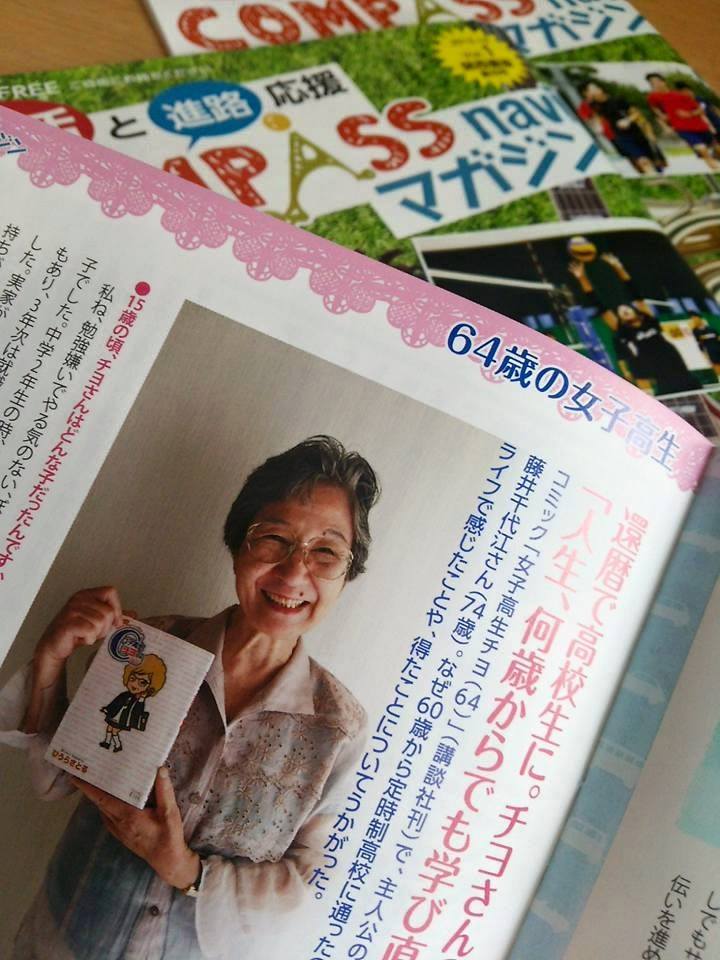 COMPASS
マガジン
FREE
と 進路 応援
COMPASS navi
マガジン
64歳の女子高生
還暦で高校生に。チヨさん
「人生、何歳からでも学び直
コミック「女子高生チヨ(64)」(講談社刊)で、主人公の
藤井千代江さん(74歳)。なぜ60歳から定時制高校に通った
ライフで感じたことや、得たことについてうかがった。
●15歳の頃、チヨさんはどんな子だったんです
私ね、勉強嫌いでやる気のない
子でした。中学2年生の時、
もあり、3年次は就
した。実家が
持ち
ひうらさとる
しても
伝いを進め